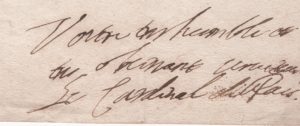 Votre tres humble et
tres obeissant serviteur
Le Cardinal de Retz